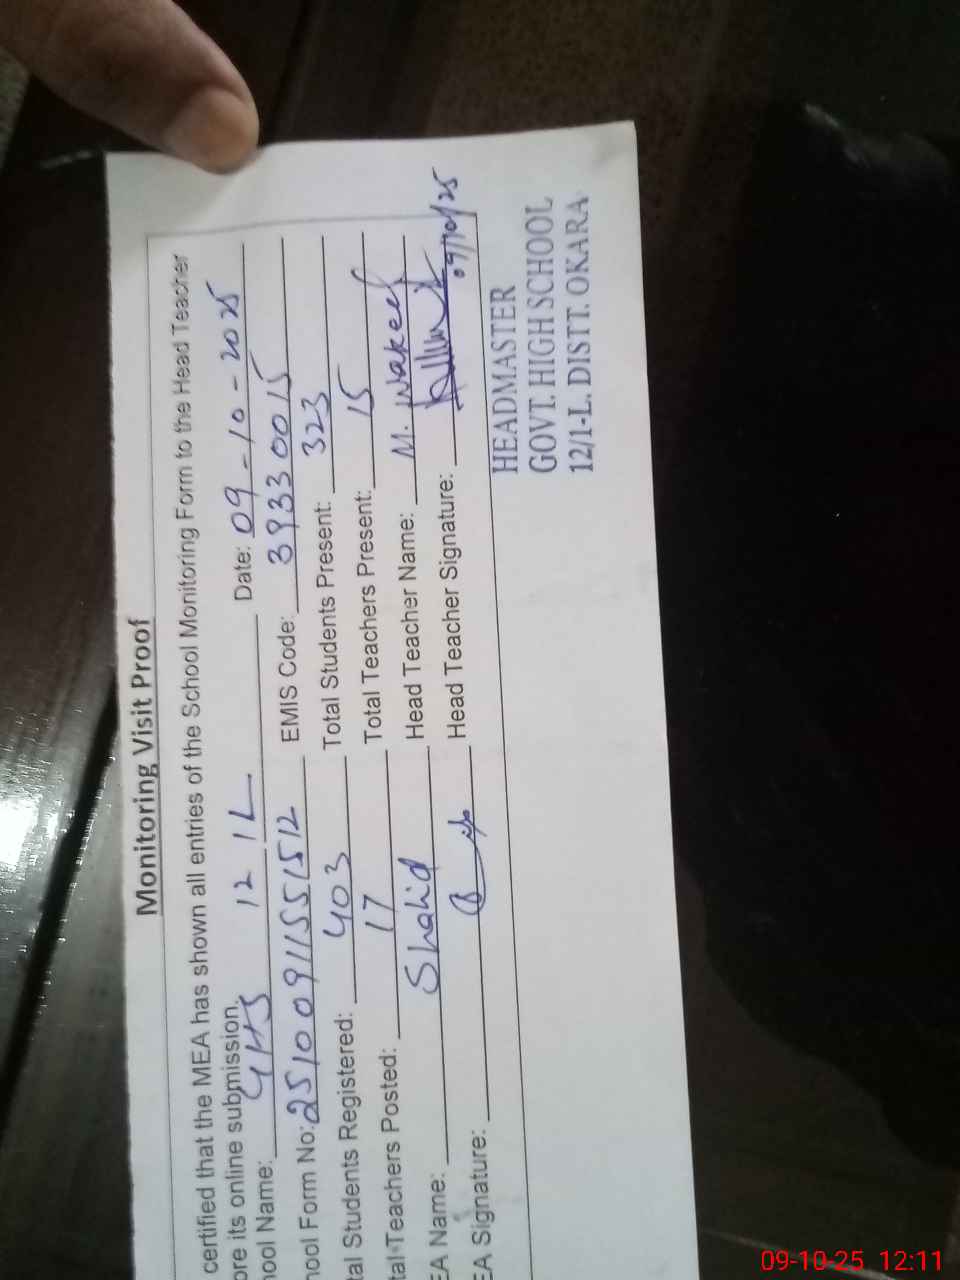 Monitoring Visit Proof
certified that the MEA has shown all entries of the School Monitoring Form to the Head Teacher
ore its online submission.
hool Name: GHS 12 1L Date: 09-10-2025
hool Form No: 25100911551512 EMIS Code: 39330015
tal Students Registered: 403 Total Students Present: 323
tal Teachers Posted: 17 Total Teachers Present: 15
EA Name: Shahid Head Teacher Name: M. Wakeel
EA Signature: Head Teacher Signature: 09/10/25
HEADMASTER
GOVT. HIGH SCHOOL
12/1-L. DISTT. OKARA
09-10-25 12:11